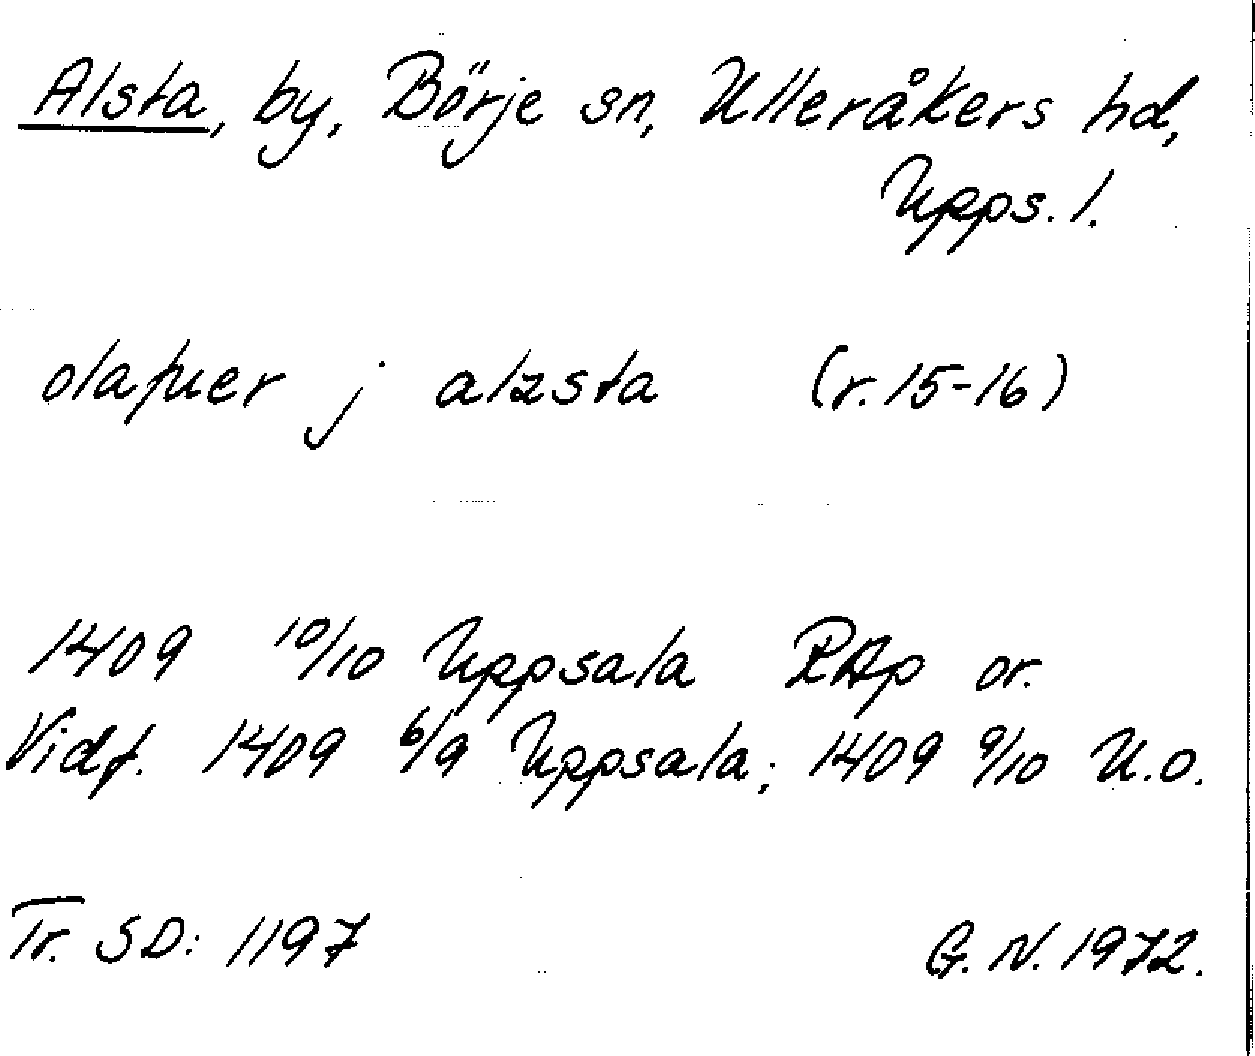 Alsta, by, Börje sn, Ulleråkers hd,
Upps. l.
olafuer j alzsta (r. 15-16)
1409 10/10 Uppsala RAp or.
Vidf. 1409 6/9 Uppsala; 1409 9/10 U.o.
Tr. SD: 1197 G. N. 1972.